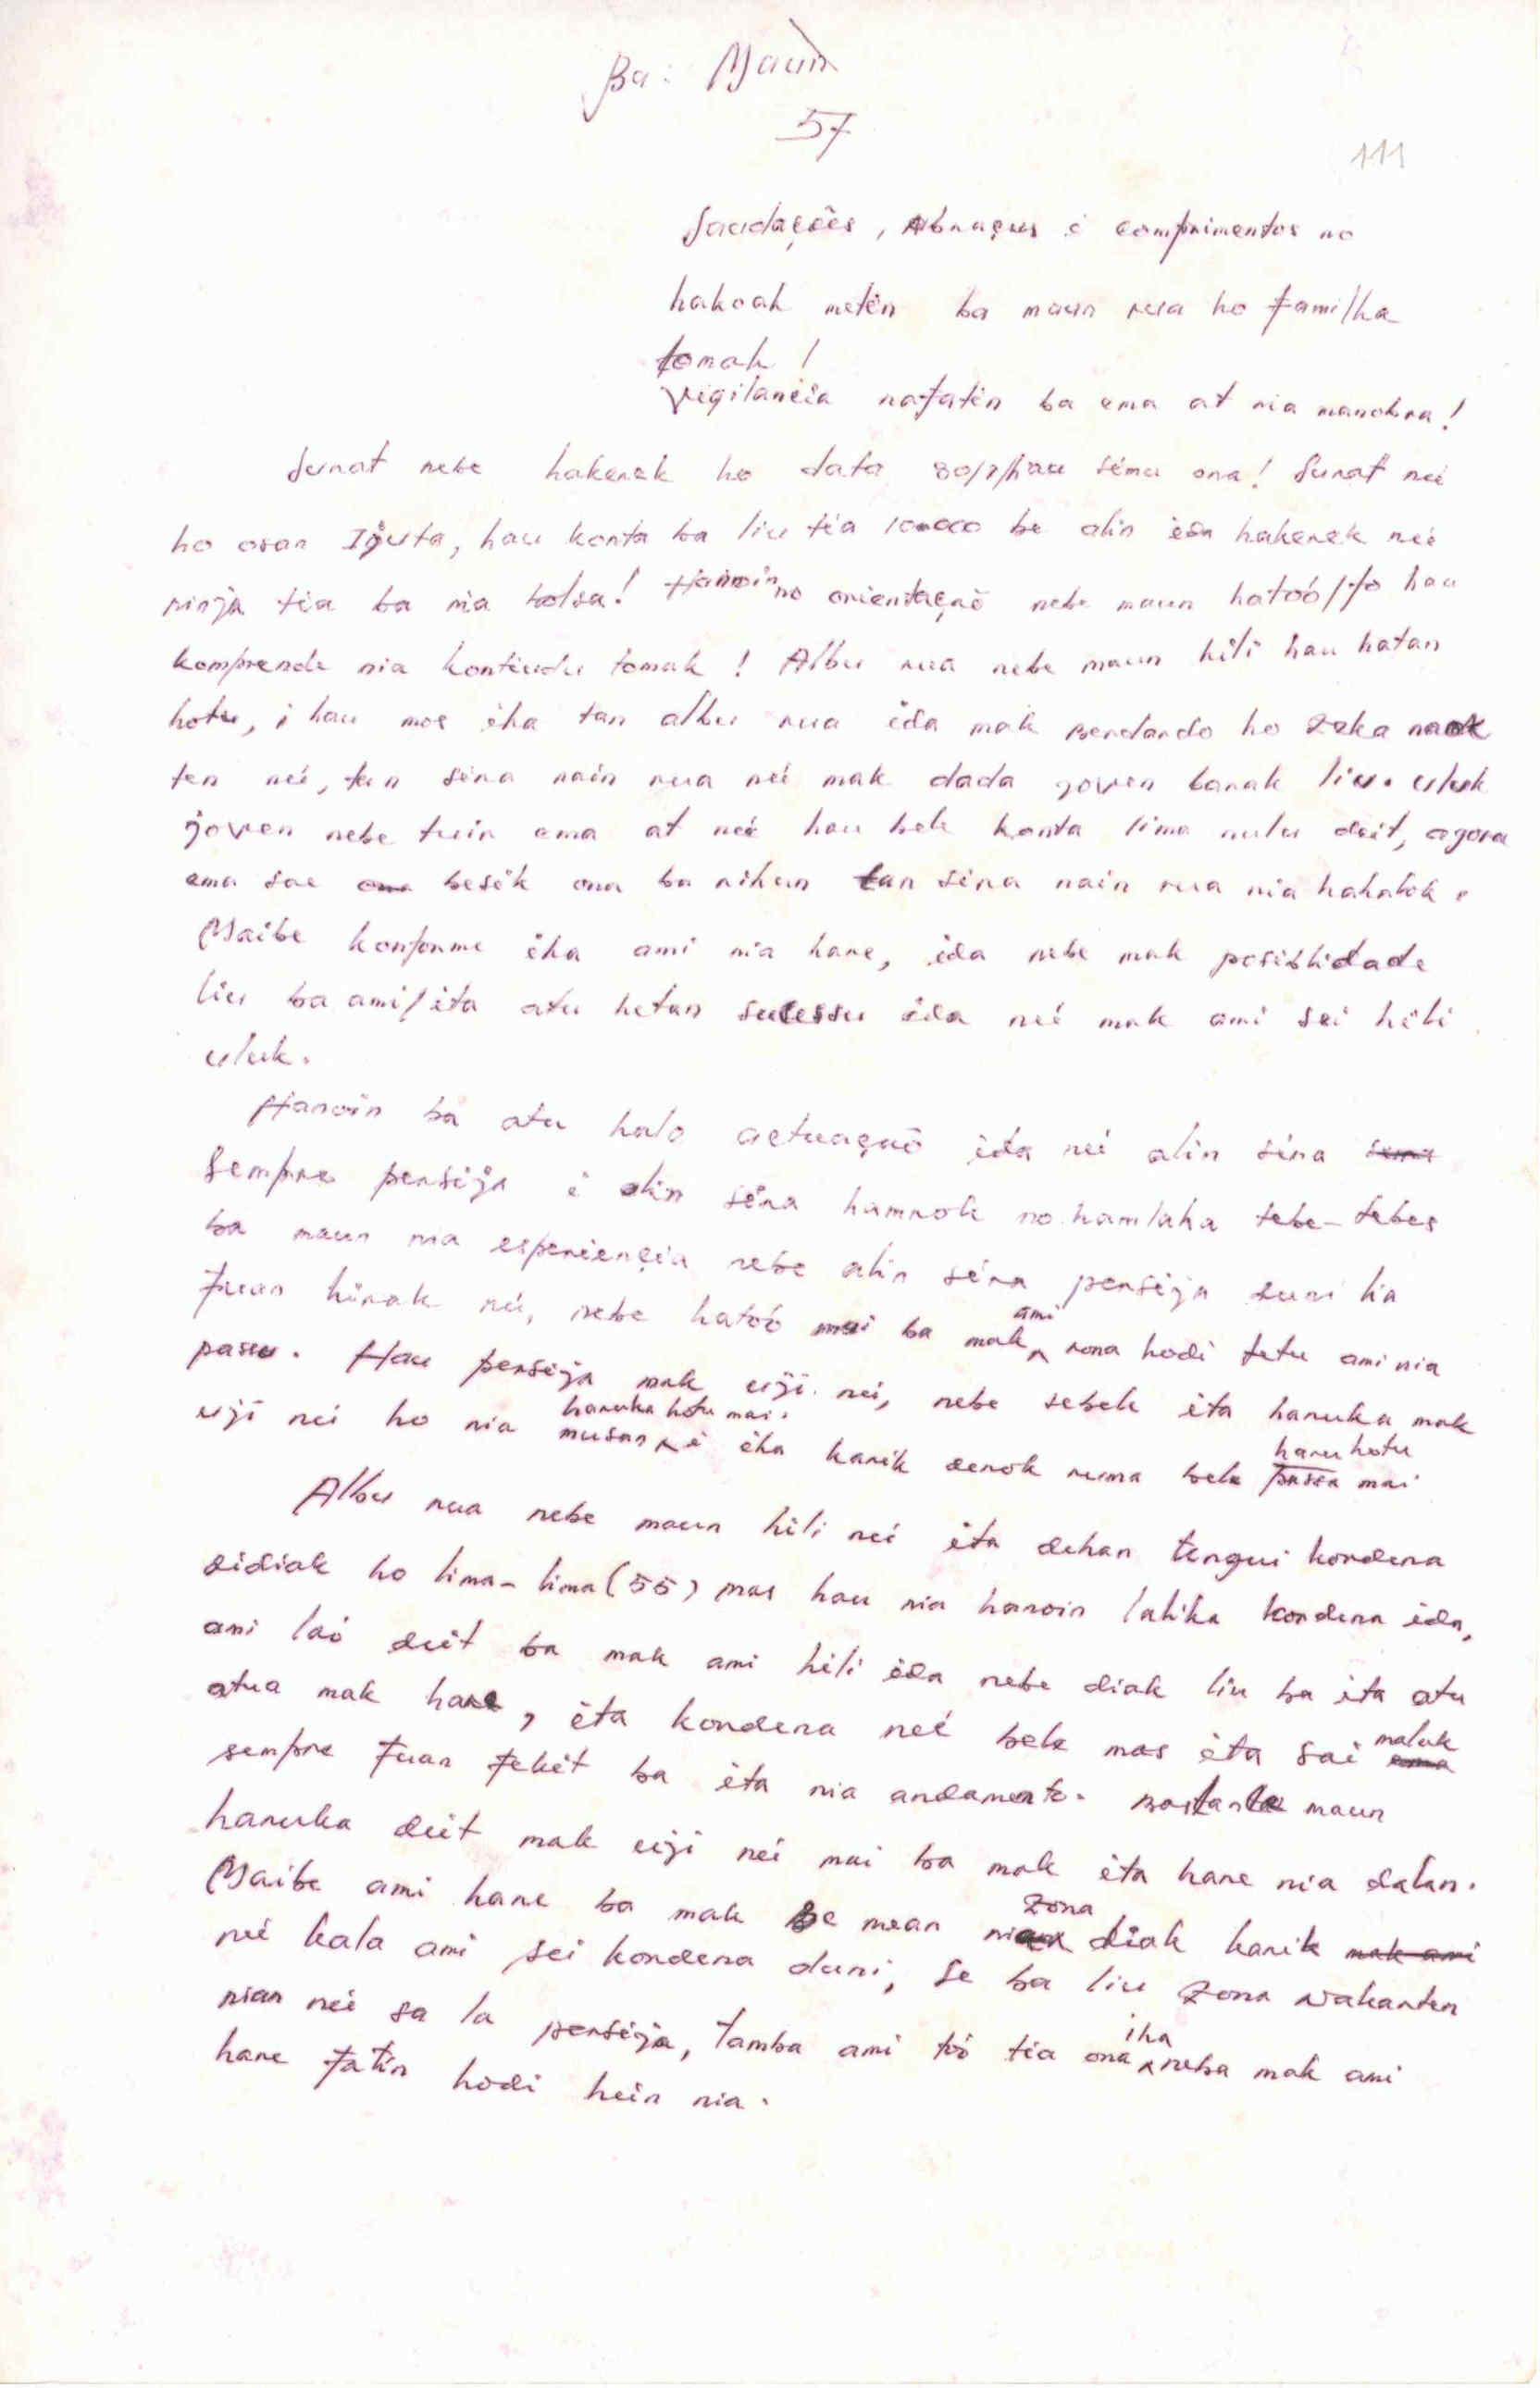 Ba: Maun
57
111
Saudações, Abraçus i comprimentos no
hakoak metin ba maun rua ho familha
tomak!
Vigilancia nafatin ba ema at nia manobra!
Surat nebe hakerek ho data 30/7/hau simu ona! Surat neé
ho osan Ijuta, hau konta ba liu tia 10.000 be alin ida hakerek neé
rinja tia ba nia bolsa! Hanoin no orientaçaõ nebe maun hatoó/fo hau
komprende nia kontiudu tomak! Albu rua nebe maun hili hau hatan
hotu, i hau mos iha tan albu rua ida mak Bendardo ho Zeka
ten neé, tan sira nain rua neé mak dada joven barak liu. uluk
joven nebe tuir ema at neé hau bele konta lima nulu deit, agora
ema sae besik ona ba rihun tan sira nain rua nia hahalok.
Maibe konforme iha ami nia hare, ida nebe mak posiblidade
liu ba ami/ita atu hetan sucessu ida neé mak ami sei hili
uluk.
Hanoin ba atu halo actuaçaõ ida neé alin sira
sempre persija i alin sira hamrok no hamlaha tebe-tebes
ba maun nia esperiençia nebe alin sira persija duni lia
fuan hirak neé, nebe hatoó mai ba mak ami rona hodi tetu ami nia
passu. Hau persija mak uji neé, nebe sebele ita haruka mak
uji neé ho nia musan haruka hotu mai. i iha karik serok ruma bele haru hotu passa mai
Albu rua nebe maun hili neé ita dehan tengui kordena
didiak ho lima-lima (55) mas hau nia hanoin lalika kordena ida,
ami laó deit ba mak ami hili ida nebe diak liu ba ita atu
atua mak hare, ita kordena neé bele mas ita sai maluk
sempre fuan fekit ba ita nia andamento. Bastante maun
haruka deit mak uji neé mai ba mak ita hare nia dalan.
Maibe ami hare ba mak Be mean nian Zona diak karik
neé kala ami sei kordena duni, se ba liu Zona Wakarten
nian neé sa la persija, tamba ami tó tia ona iha neba mak ami
hare fatin hodi hein nia.